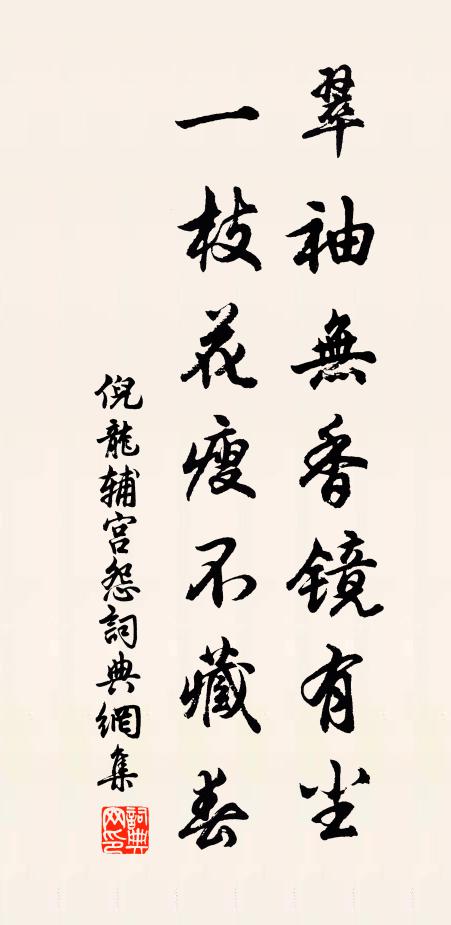 翠袖無香镜有尘
一枝花瘦不藏春
倪龍辅宫怨詞典網集
詞典网印